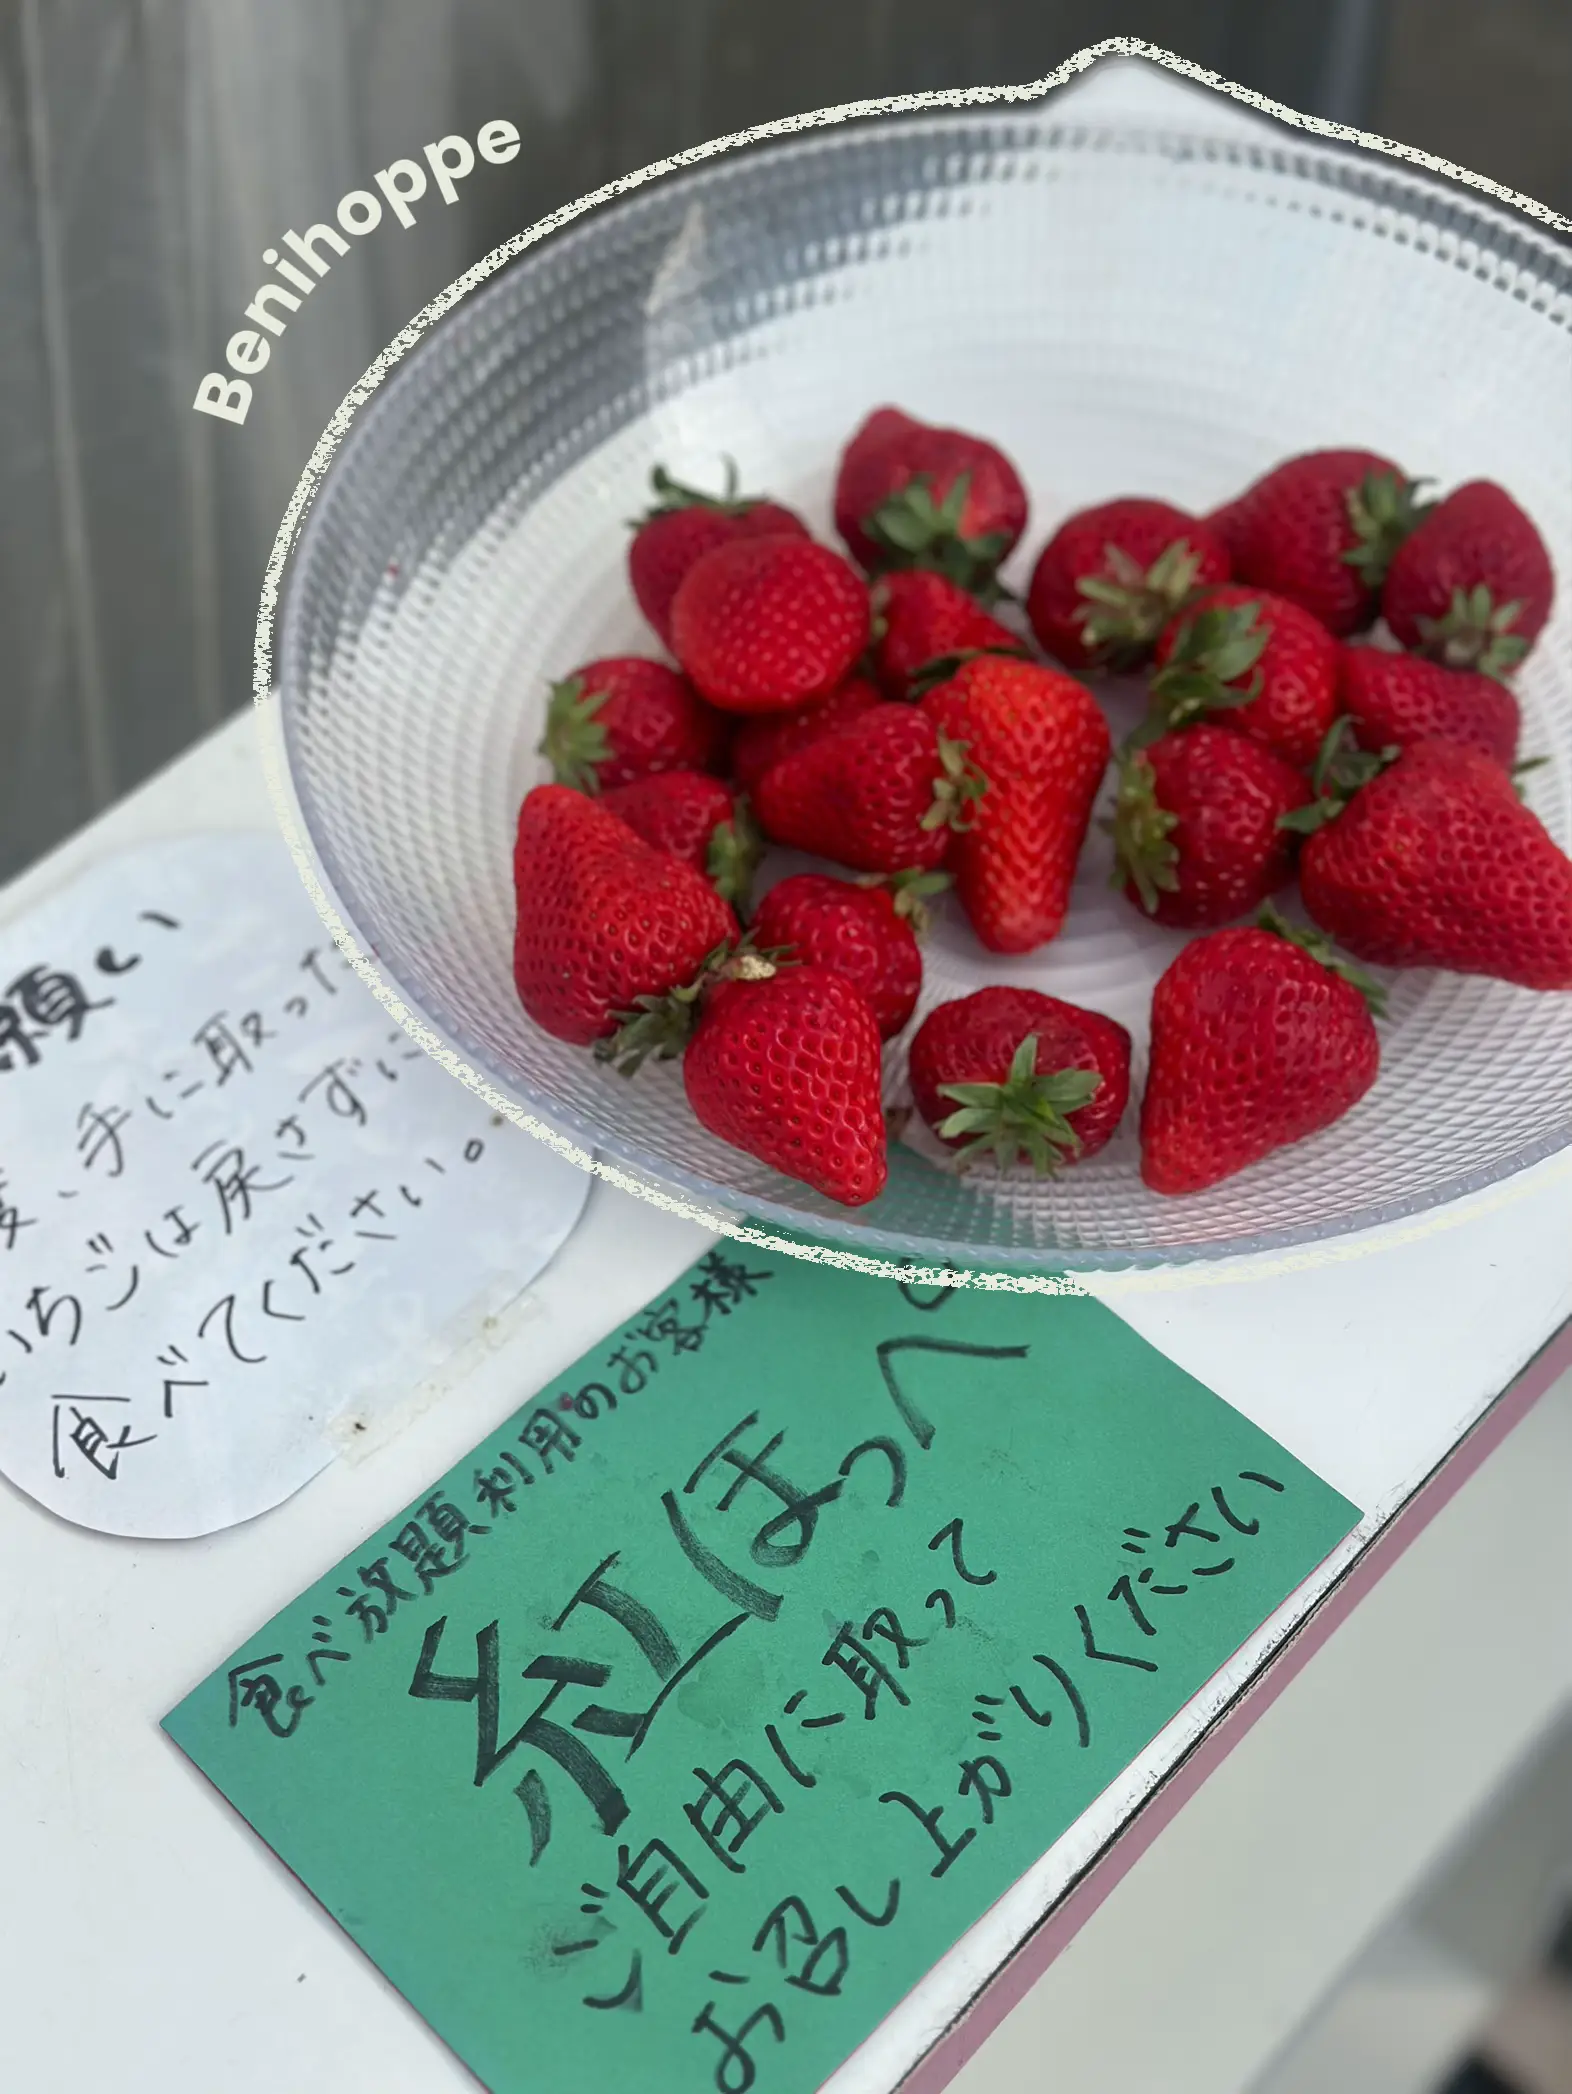 Benihoppe
願い
、手に取った
いちジは戻さずに
食べてください。
食べ放題利用のお客様
紅ほっぺ
ご自由に取って
お召し上がりください